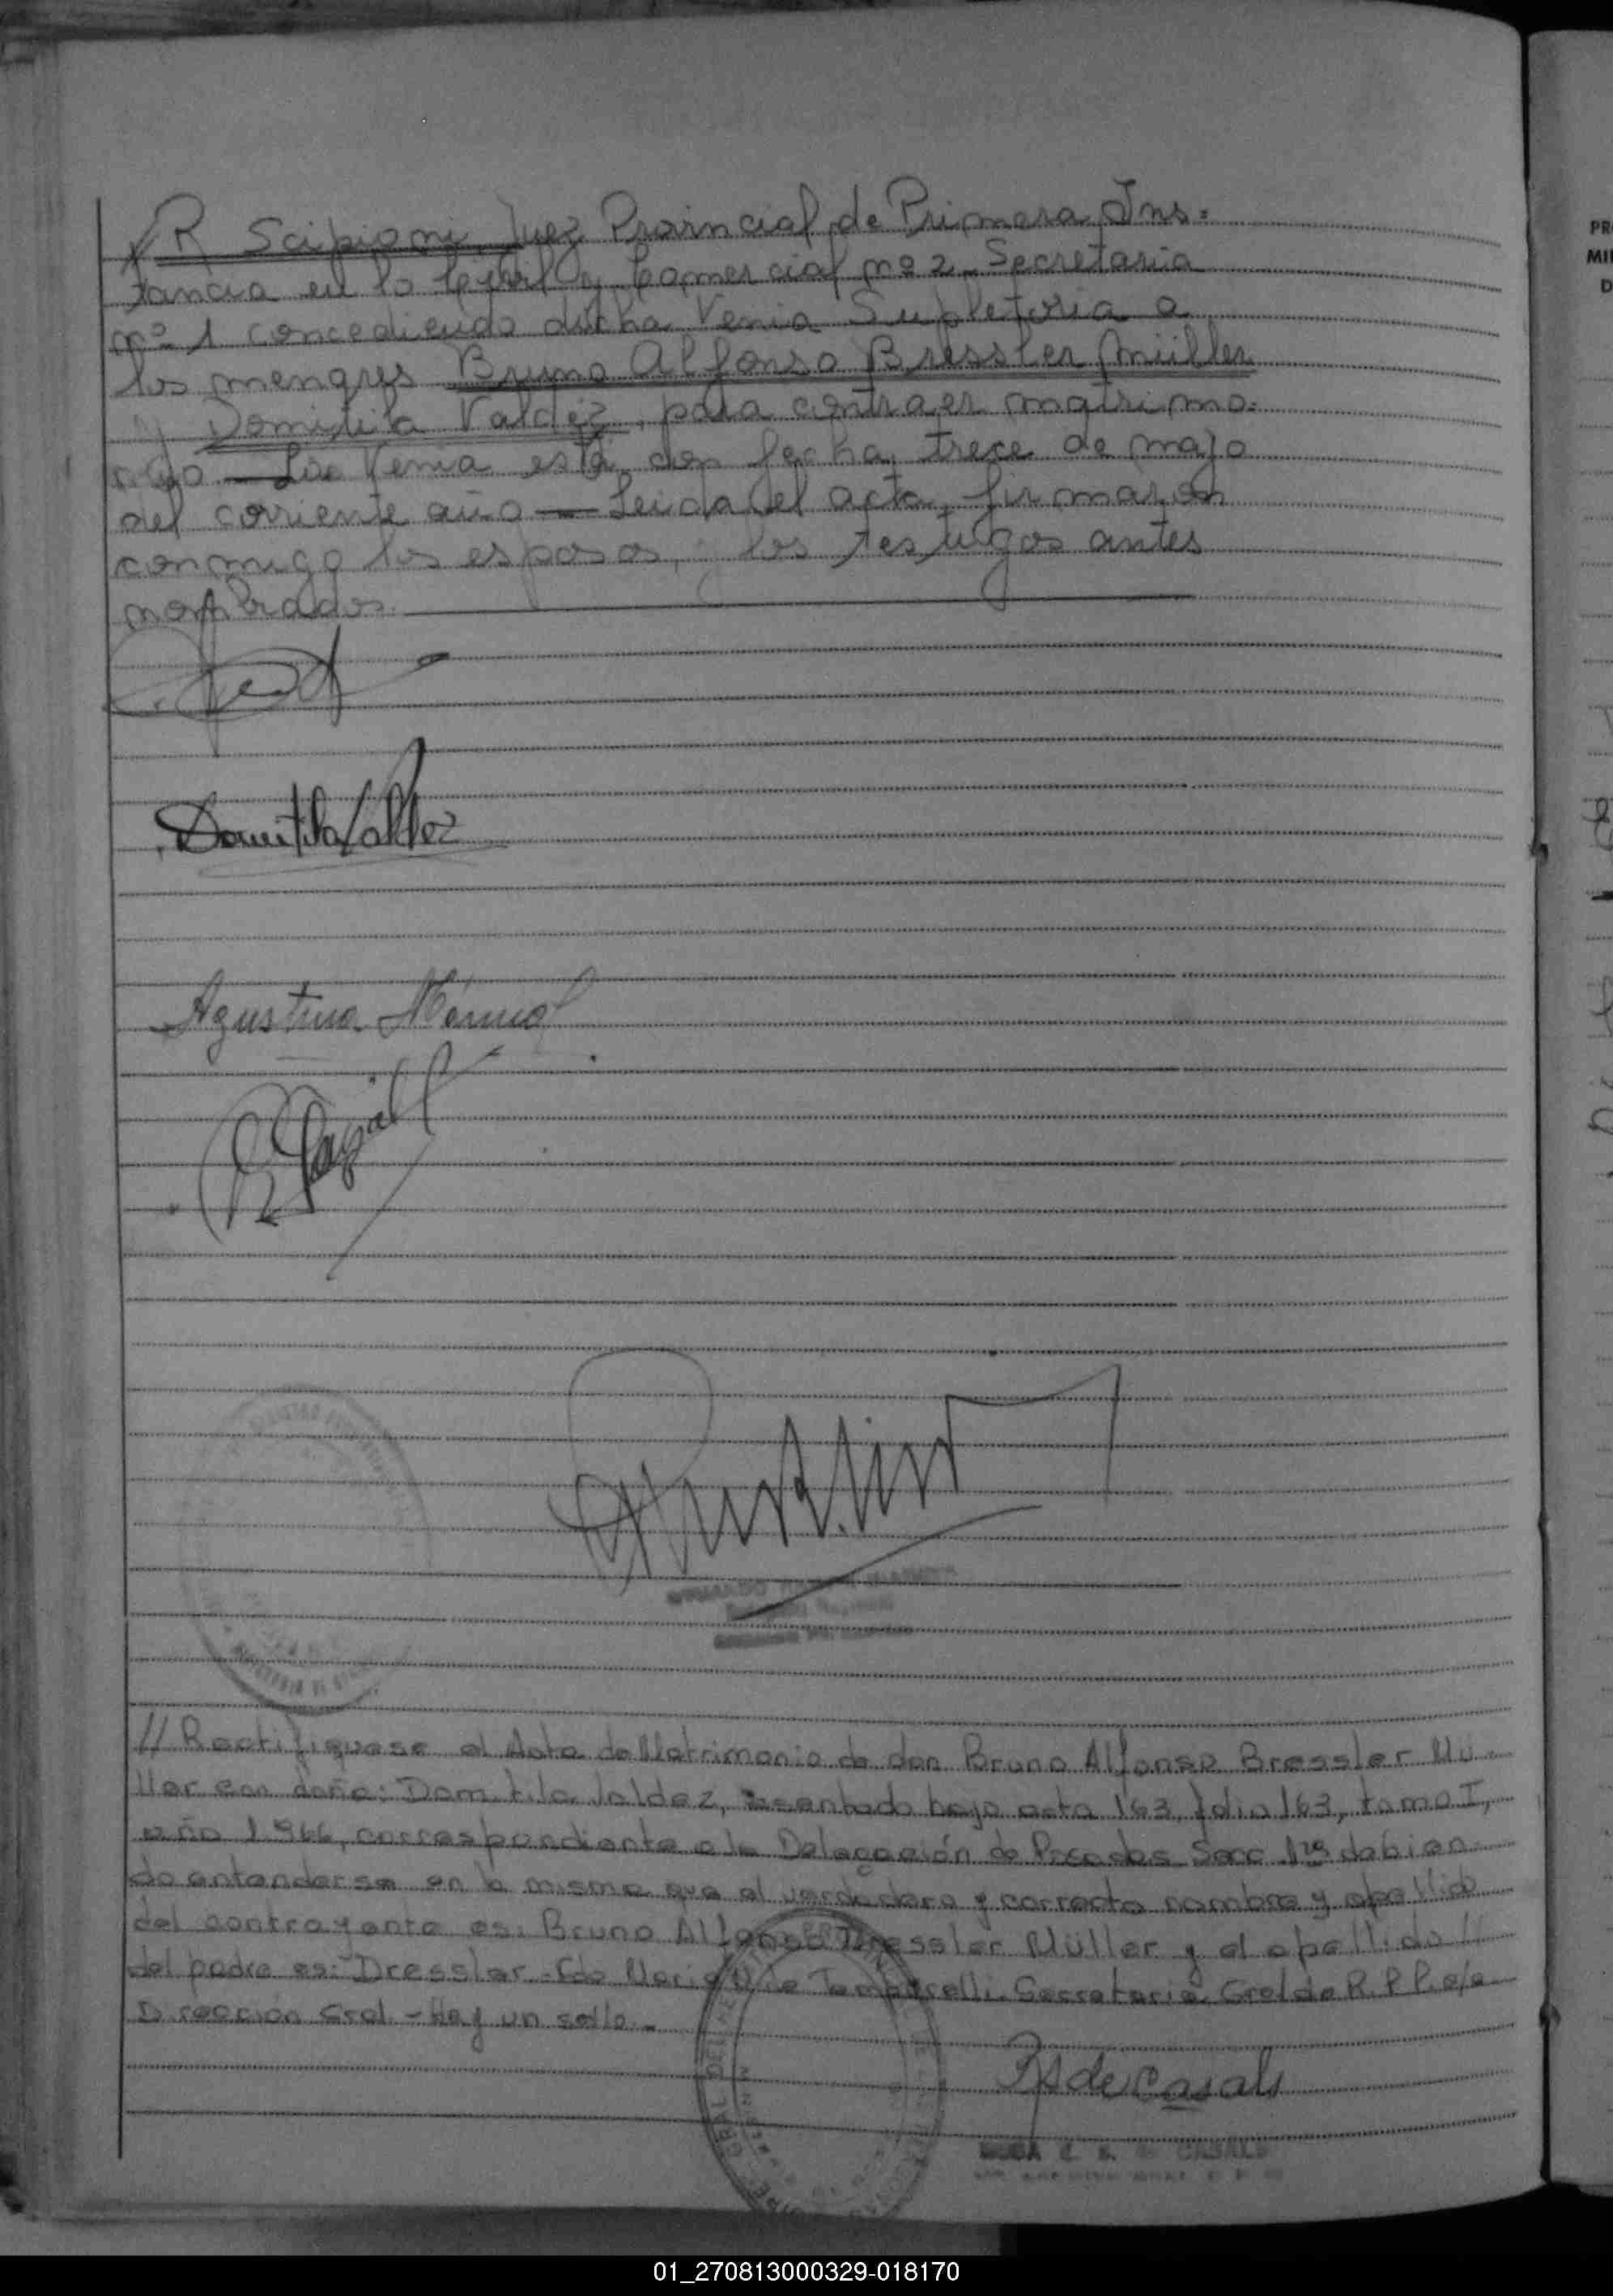 R Scipioni, Juez Provincial de Primera Ins=
tancia en lo Civil y Comercial nº 2 - Secretaria
nº 1 concediendo dicha Venia Supletoria a
los menores Bruno Alfonso Bressler Müller
y Domitila Valdéz, para contraer matrimo=
nio — La Venia está con fecha trece de mayo
del corriente año — Leida el acta, firmaron
conmigo los esposos, y los testigos antes
nombrados.
Domitila Valdez
Agustina
// Rectifiquese el Acta de Matrimonio de don Bruno Alfonso Bressler Mu-
ller con doña: Domitila Valdez, asentado bajo acta 163, folio 163, tomo I,
año 1.966, correspondiente a la Delegación de Posadas Secc 1ra debien-
do entenderse en la misma que el verdadero y correcto nombre y apellido
del contrayente es: Bruno Alfonso Dressler Müller y el apellido //
del padre es: Dressler - Fdo Maria de Secretaria Gral de R.P.P. a/c
Dirección Gral. - Hay un sello. -
RS de Casals
CASALS
PR
MI
D
01_270813000329-018170